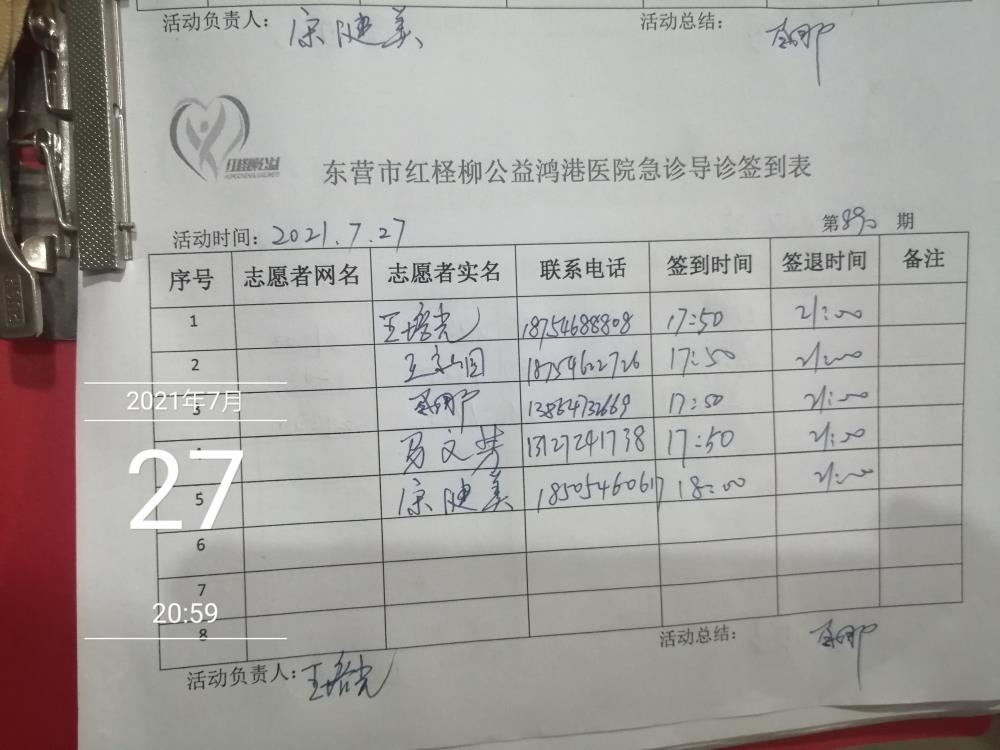 活动负责人：宗健美 活动总结：
红柽柳公益
东营市红柽柳公益鸿港医院急诊导诊签到表
活动时间：2021.7.27 第 期
序号 志愿者网名 志愿者实名 联系电话 签到时间 签退时间 备注
1 王培光 18754688808 17:50 21:00
2 18754622726 17:50 21:00
3 13864732669 17:50 21:00
马文梦 13127241738 17:50 21:00
5 宗健美 18505460617 18:00 21:00
6
7
8
活动负责人：王培光 活动总结：
2021年7月
27
20:59